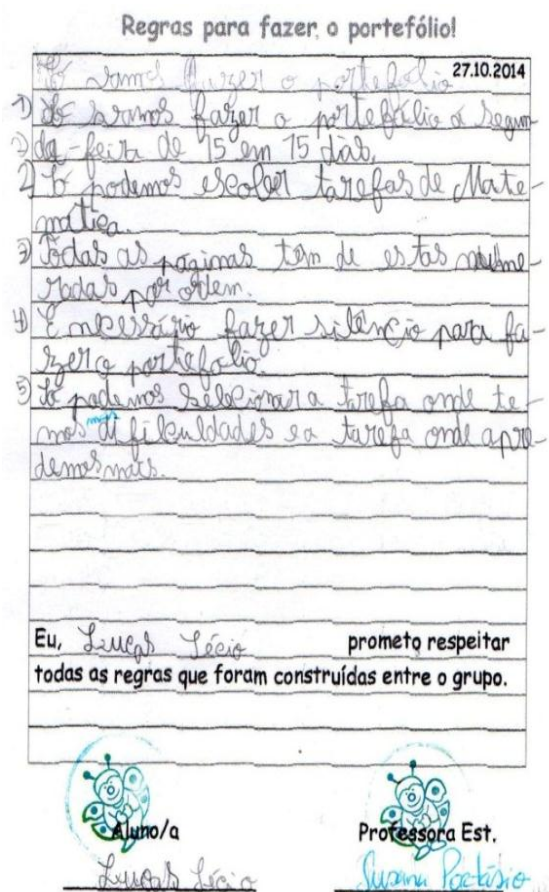 Regras para fazer o portefólio!
27.10.2014
Só vamos fazer o portefolio
1) Só vamos fazer o portefólio á segun
2) da-feira de 15 em 15 dias.
2) Só podemos escolher tarefas de Mate-
mática.
3) Todas as páginas têm de estas nume-
radas por ordem.
4) É necessário fazer silêncio para fa-
zer o portefolio.
5) Só podemos selecionar a tarefa onde te-
mos mais dificuldades e a tarefa onde apre-
demos mais.
Eu, Lucas Lécio prometo respeitar
todas as regras que foram construídas entre o grupo.
Aluno/a Professora Est.
Lucas Lécio Susana Portásio